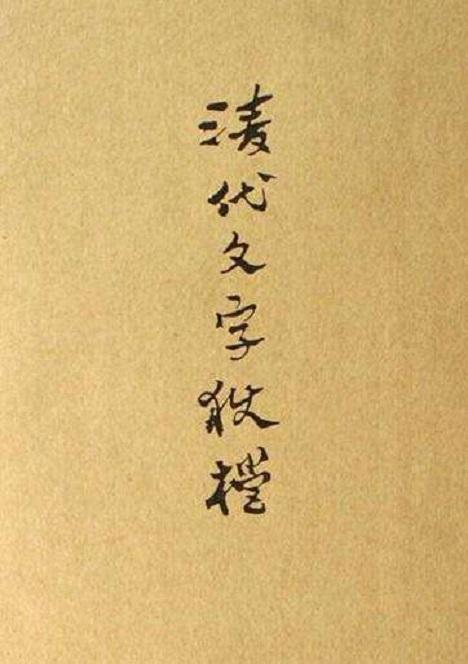 清代文字獄檔